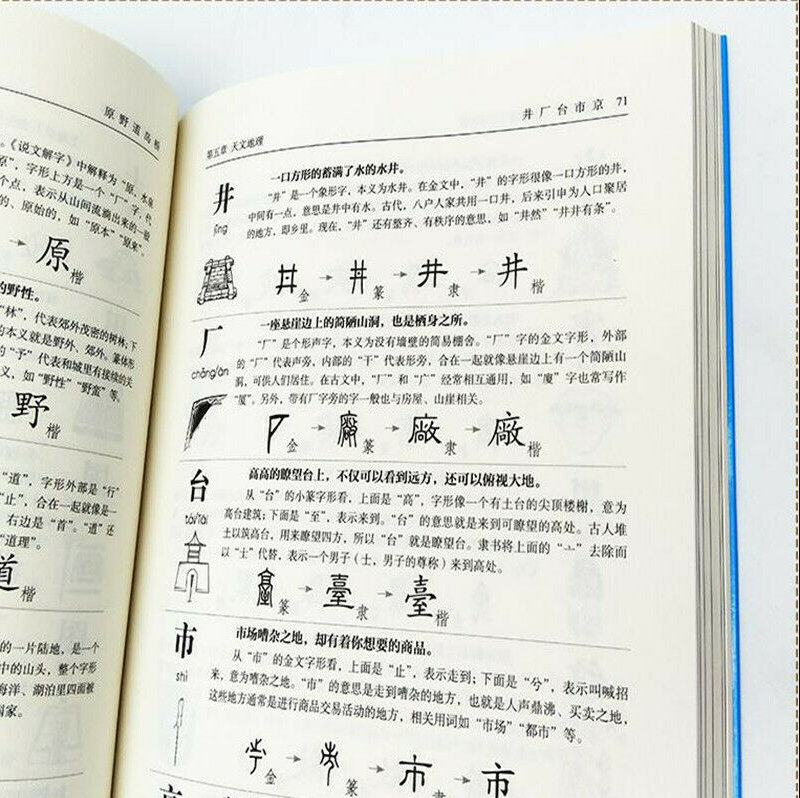 原野道岛桥
。《说文解字》中解释为“原，水泉
原”，字形上方是一个“厂”字，代
个点，表示从山间流淌出来的一股
的、原始的，如“原本”“原来”。
→ 原 楷
的野性。
“林”，代表郊外茂密的树林；下
的本义就是野外、郊外。篆体形
的“予”代表和城里有接续的关
义，如“野性”“野蛮”等。
野 楷
“道”，字形外部是“行”
“止”，合在一起就像是一
右边是“首”。“道”还
“道理”。
道 楷
的一片陆地，是一个
中的山头，整个字形
海洋、湖泊里四面被
国家。
第五章 天文地理
井厂台市京 71
井
jǐng
一口方形的蓄满了水的水井。
“井”是一个象形字，本义为水井。在金文中，“井”的字形很像一口方形的井，
中间有一点，意思是井中有水。古代，八户人家共用一口井，后来引申为人口聚居
的地方，即乡里。现在，“井”还有整齐、有秩序的意思，如“井然”“井井有条”。
井 金 → 井 篆 → 井 隶 → 井 楷
厂
chǎng/ān
一座悬崖边上的简陋山洞，也是栖身之所。
“厂”是个形声字，本义为没有墙壁的简易棚舍。“厂”字的金文字形，外部
的“厂”代表声旁，内部的“干”代表形旁，合在一起就像悬崖边上有一个简陋山
洞，可供人们居住。在古文中，“厂”和“广”经常相互通用，如“廈”字也常写作
“厦”。另外，带有厂字旁的字一般也与房屋、山崖相关。
厂 金 → 廠 篆 → 廠 隶 → 廠 楷
台
tái/tāi
高高的瞭望台上，不仅可以看到远方，还可以俯视大地。
从“台”的小篆字形看，上面是“高”，字形像一个有土台的尖顶楼榭，意为
高台建筑；下面是“至”，表示来到。“台”的意思就是来到可瞭望的高处。古人堆
土以筑高台，用来瞭望四方，所以“台”就是瞭望台。隶书将上面的“亠”去除而
以“士”代替，表示一个男子（士，男子的尊称）来到高处。
臺 篆 → 臺 隶 → 臺 楷
市
shì
市场嘈杂之地，却有着你想要的商品。
从“市”的金文字形看，上面是“止”，表示走到；下面是“兮”，表示叫喊招
来，意为嘈杂之地。“市”的意思是走到嘈杂的地方，也就是人声鼎沸、买卖之地，
这些地方通常是进行商品交易活动的地方，相关用词如“市场”“都市”等。
市 金 → 市 篆 → 市 隶 → 市